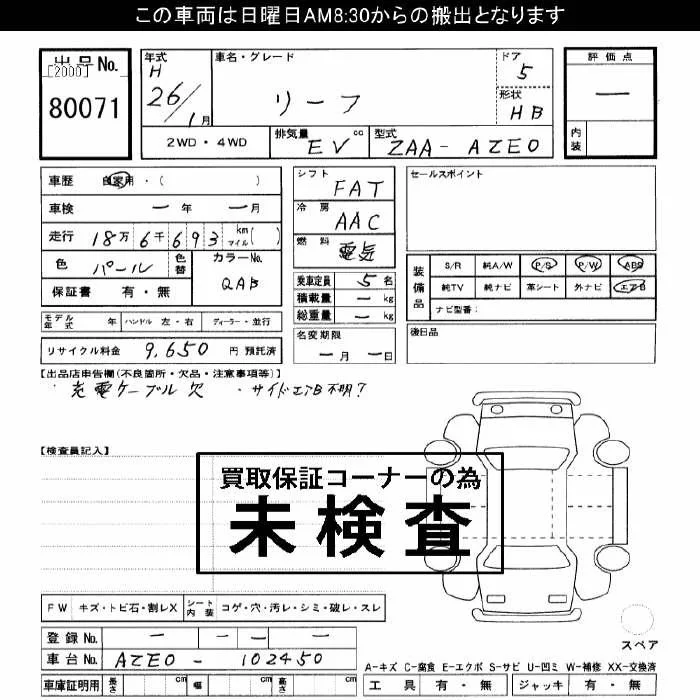 この車両は日曜日AM8:30からの搬出となります
出品No.
[2000]
80071
年式
H
26/1月
車名・グレード
リーフ
ドア
5
形状
HB
評価点
ー
内装
2WD・4WD
排気量
EV cc
型式
ZAA-AZE0
車歴 自家用・( )
車検 ー年 ー月
走行 18万6千693 km マイル( )
色 パール
色替
カラーNo.
QAB
保証書 有・無
シフト
FAT
冷房
AAC
燃料
電気
乗車定員 5名
積載量 ー kg
総重量 ー kg
セールスポイント
装備品
S/R 純A/W P/S P/W ABS
純TV 純ナビ 革シート 外ナビ エアB
ナビ型番:
モデル年式 年 ハンドル 左・右 ディーラー・並行
名変期限
ー月 ー日
後日品
リサイクル料金 9,650 円 預託済
【出品店申告欄(不良箇所・欠品・注意事項等)】
・充電ケーブル欠 ・サイドエアB不明?
【検査員記入】
買取保証コーナーの為
未検査
FW キズ・トビ石・割レX シート内装 コゲ・穴・汚レ・シミ・破レ・スレ
登録No. ー ー ー
車台No. AZE0 - 102450
スペア
A-キズ C-腐食 E-エクボ S-サビ U-凹ミ W-補修 XX-交換済
車庫証明用 長さ cm 幅 cm 高さ cm
工具 有・無 ジャッキ 有・無